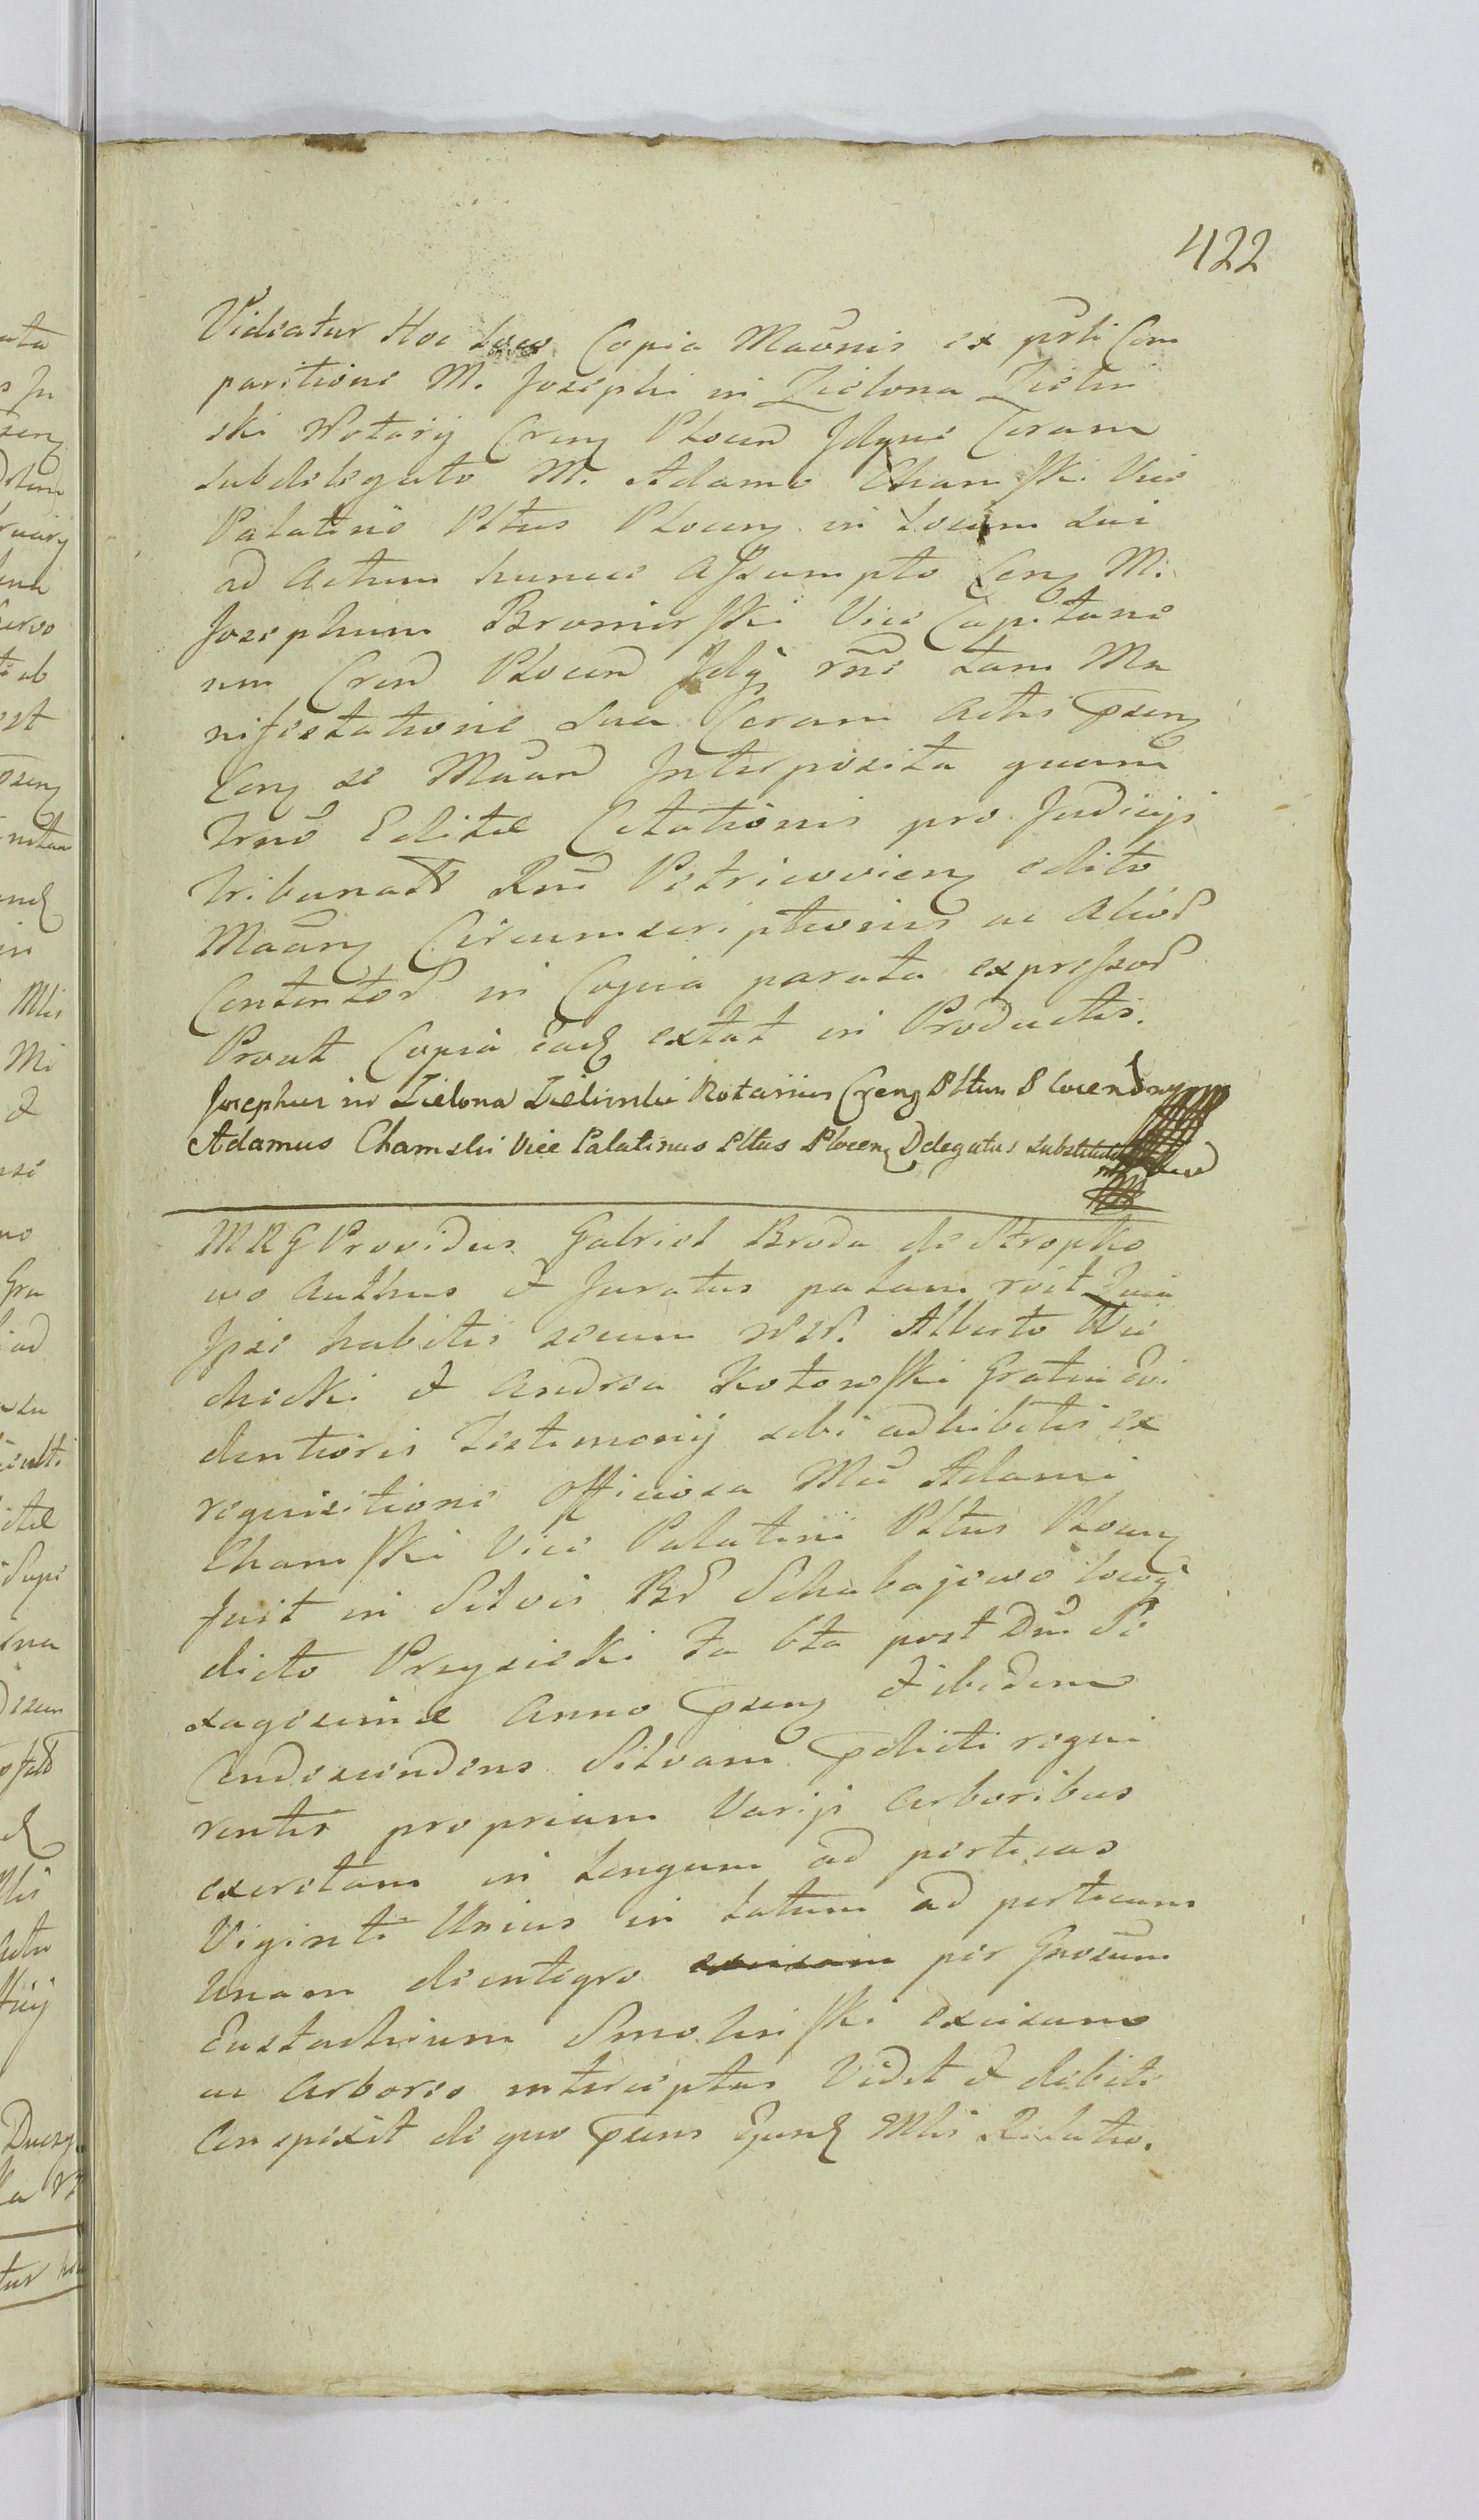 422
Videatur Hoc Loco Copia Maõnis ex psti Com
paritione M. Josephi in Zielona Zielin
ski Notarij Cren Plocen Jdque Coram
Subdelegato M. Adamo Chamski Vice
Palatino Pltus Plocen in Locum Sui
ad Actum hunce Assumpto Con M.
Josephum Bromirski Vice Capitane
um Cren Plocen Jdq rñe tam Ma
nifestatione Sua Coram Actis psen
Con se Maan Interposita quam
Irno Editae Citationis pro Judicijs
Tribunal Rni Petricovien edito
Maan Circumscriptionis ac Alior
Contentor in Copia parata expressor
Prout Copia ead extat in Productis.
Josephus in Zielona Zielinski Notarius Cren Pltus Plocen
Adamus Chamski Vice Palatinus Pltus Plocen Delegatus Substitutus
MRG Providus Gabriel Broda de Stropko
wo Authus & Juratus palam roit Quia
Ipse habitis secum NN. Alberto Wie
checki & Andrea Kotowski Gratia Evi
dentioris Testimonij sibi adhibitis ex
requisitione officiosa Mci Adami
Chamski Vice Palatini Pltus Plocen
fuit in Silvis Br Schabajewo locoq
dicto Przysieki Fa 6ta post Dni Se
xagesimae Anno psen & ibidem
Condescendens Silvam pdicti requi
rentis propriam Varijs Arboribus
exeretam in Longum ad perticas
Viginti Unius in Latum ad perticam
Unam de integro per Gnosum
Eustachium Smolinski excisam
ac Arbores interceptas Vidit & debite
Conspexit de quo psens Ejusd Mlis Relatio.